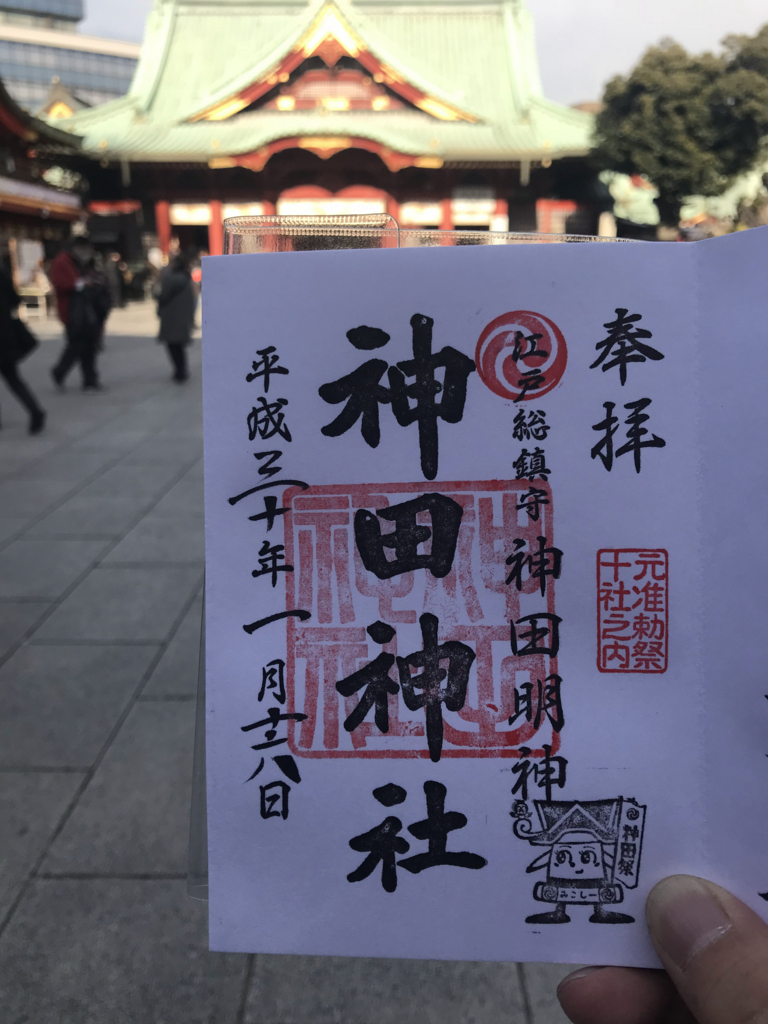 奉拝
元准勅祭
十社之内
江戸総鎮守 神田明神
神田祭
みこしー
神田神社
神田
神社
平成三十年一月八日